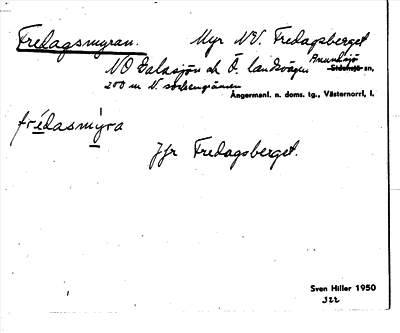 Fredagsmyran. Myr NV. Fredagsberget
NO Galasjön och Ö. landsvägen Anundsjö
Sidensjö sn,
200 m N. sockengränsen
Ångermanl. n. doms. tg., Västernorrl. l.
frédasmýra
Jfr Fredagsberget.
Sven Hiller 1950
322